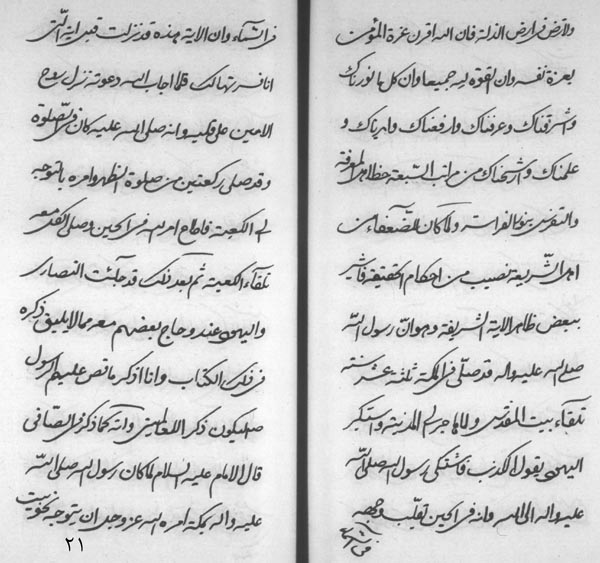 ولا ترض فی ارض الذلة فان الله اقرن عزة المؤمن
بعزة نفسه وان القوة لله جمیعا وان کل ما نورناک
واشرقناک وعرفناک وارفعناک وامرناک و
علمناک وارشحناک من مراتب السبعة حظ اهل المعرفة
والتفرس بنور الفراسة ولما کان للضعفاء من
اهل الشریعة نصیب من احکام الحقیقة فاشیر
ببعض ظاهر الایة الشریفة وهو ان رسول الله
صلی الله علیه واله قد صلی فی المکة ثلثة عشر سنة
تلقاء بیت المقدس ولما هاجر الی المدینة واستکبر
الیهود بقول الکذب فاشتکی رسول الله صلی الله
علیه واله الی الله فانه فی الحین تقلب وجهه
فی السماء
فی السماء وان الایة هذه قد نزلت قبل ایة التی
انا فسرتها لک فلما اجاب الله دعوته نزل روح
الامین علی قلبه وانه صلی الله علیه کان فی الصلوة
وقد صلی رکعتین من صلوة الظهر وامره بالتوجه
الی الکعبة فاطاع امر الله فی الحین وصلی الکل معه
تلقاء الکعبة ثم بعد ذلک قد جائت النصاری
والیهود عنده وحاج بعضهم معه مما لا یلیق ذکره
فی ذلک الکتاب وانا اذکر ما قص علیهم الرسول
لیکون ذکر اللعالمین وانه کما ذکر فی الصافی
قال الامام علیه السلام لما کان رسول الله صلی الله
علیه واله بمکة امره الله عز وجل ان یتوجه نحو بیت
۲۱